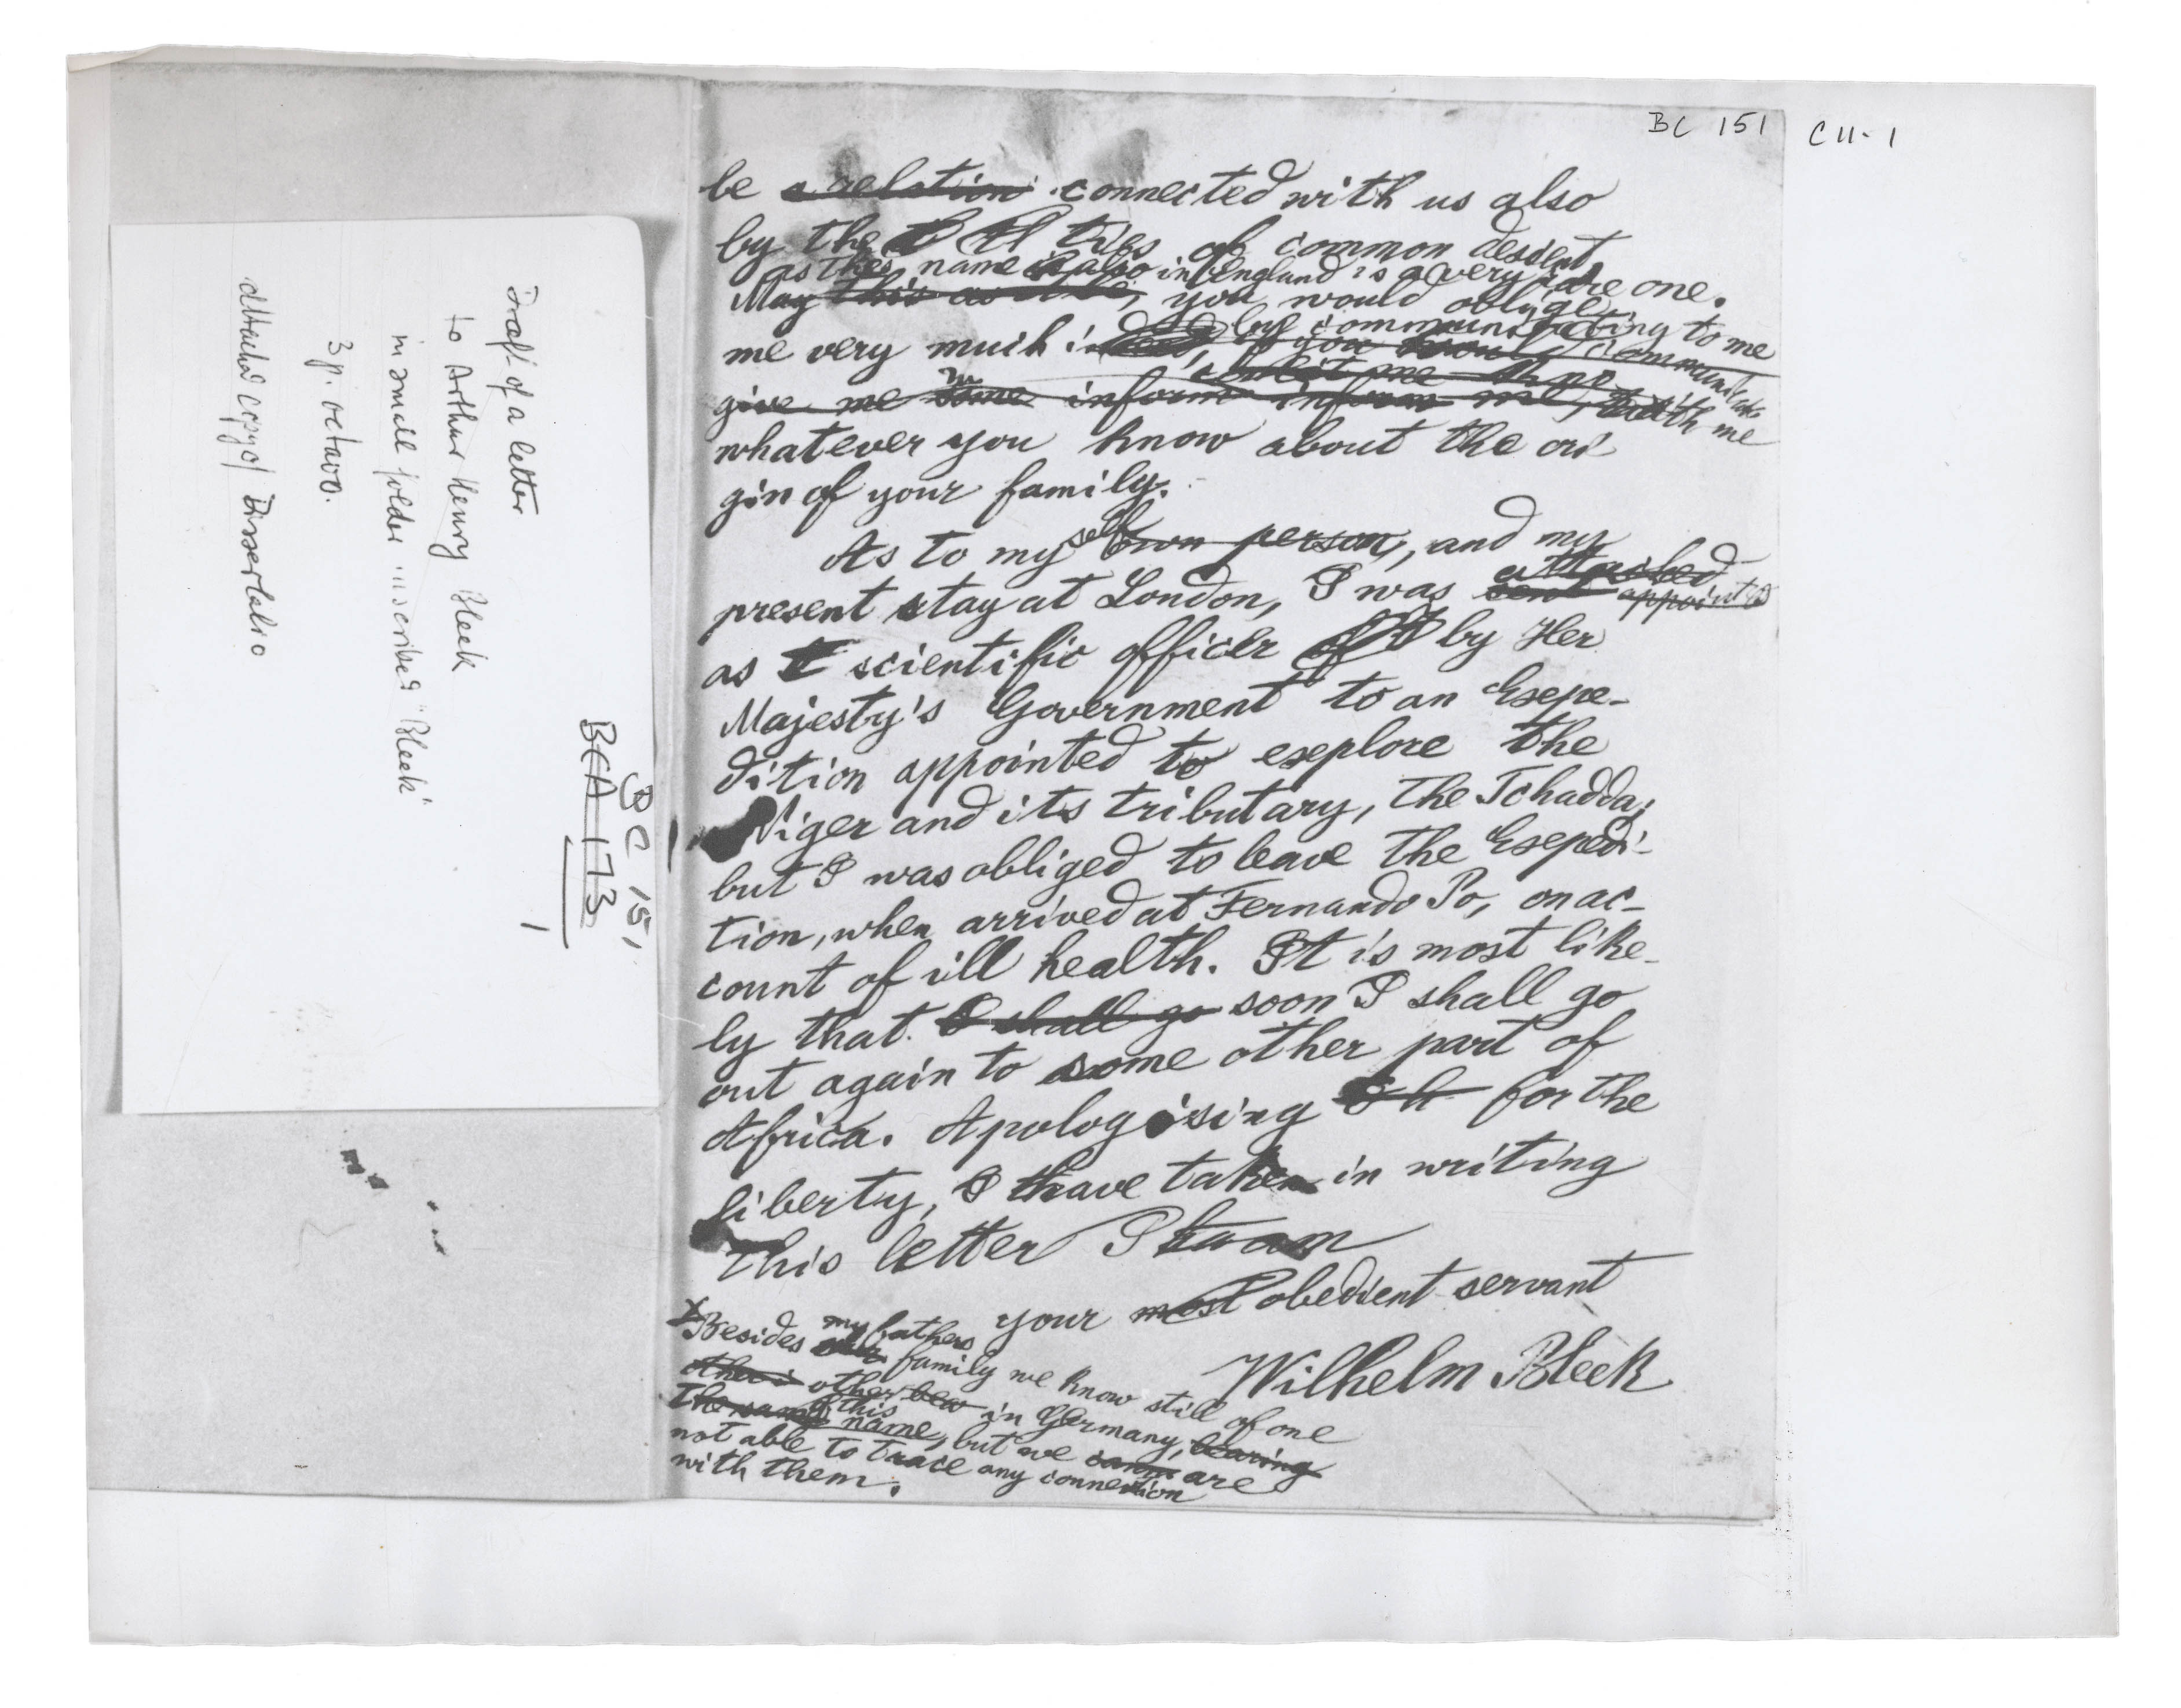 BC 151 C11-1
be a relation connected with us also
by the ties of common descent,
as the name is also in England is a very rare one.
May this you would oblige
me very much by communicating to me
communicate
give me some inform inform me, with me
whatever you know about the ori
gin of your family.
As to my self own person, and my
attached
present stay at London, I was sent appointed
as scientific officer by Her
Majesty's Government to an Expe-
dition appointed to explore the
Niger and its tributary, the Tchadda;
but I was obliged to leave the Expedi-
tion, when arrived at Fernando Po, on ac-
count of ill health. It is most like-
ly that I shall go soon I shall go
out again to some other part of
Africa. Apologising for the
liberty, I have taken in writing
this letter I am
your most obedient servant
Wilhelm Bleek
x Besides my fathers family we know still of one
other in Germany, bearing
the same this name, but we are
not able to trace any connection
with them.
BC 151
BCA 173
Draft of a letter
to Arthur Henry Bleek
in small folder inscribed "Bleek"
3 p. octavo.
attached copy of Dissertatio